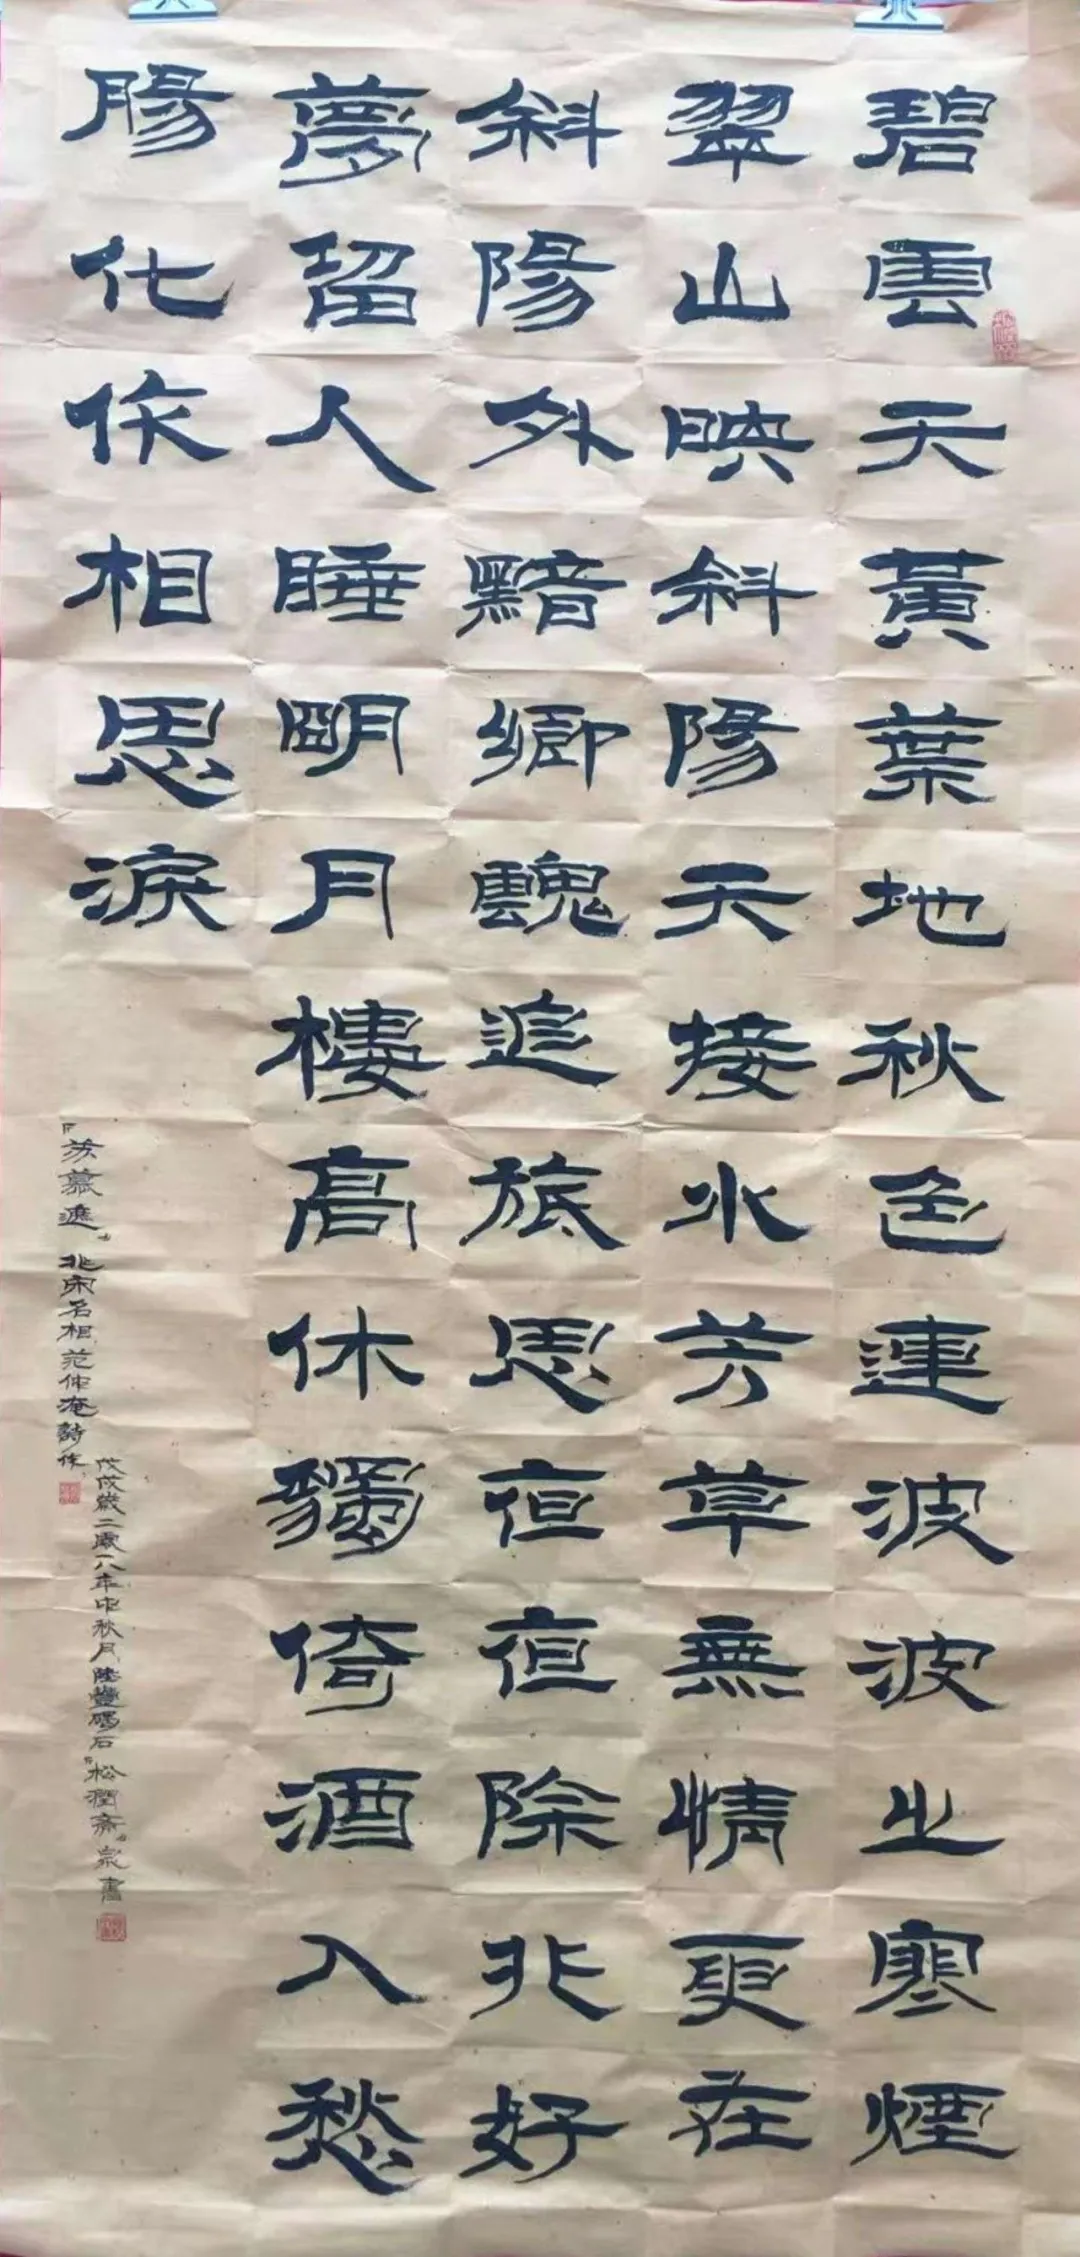 碧雲天黃葉地秋色連波波之寒煙
翠山映斜陽天接水芳草無情更在
斜陽外黯鄉魂追旅思夜夜除非好
夢留人睡明月樓高休獨倚酒入愁
腸化作相思淚
『苏慕遮』北宋名相范仲淹詩作
戊戌歲二零一八年中秋月陸豐碣石『松潤齋』泉書